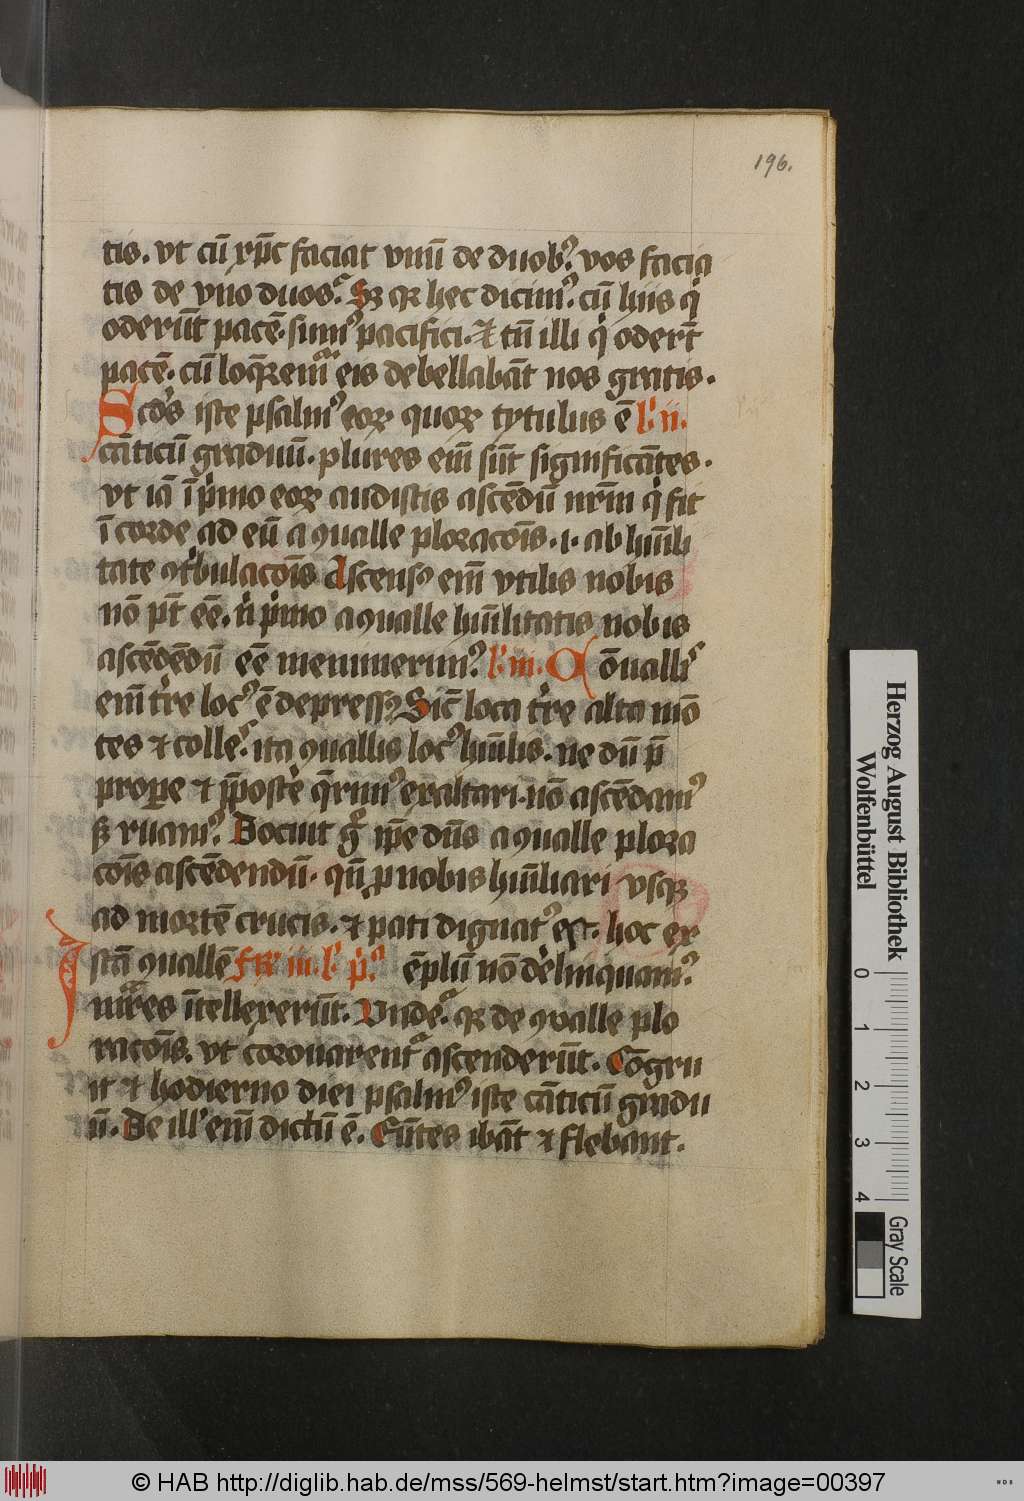 196.
tis. vt cū xp̄c faciat vnū de duob⁹. vos facia
tis de vno duos. Sꝫ qꝛ hec dicim⁹. cū hiis q̇
oderūt pacē. sum⁹ pacifici. ⁊ tn̄ illi q̇ odert̄
pacē. cū loq̄rem̄ eis debellabāt nos gratis.
Scd̓s iste psalm⁹ eoꝝ quoꝝ tytulus ē l̓. ii.
cāticū graduū. plures em̄ sūt significātes.
vt iā ī p̓mo eoꝝ audistis ascēdū nr̄m q̇ fit
ī corde ad eū a ꝯualle ploracōis. .i. ab hūili
tate ⁊ tͥbulacōis Ascens⁹ em̄ vtilis nobis
nō pt̄ eē. n̓ p̓mo a ꝯualle hūilitatis nobis
ascēdēdū eē meminerim⁹. l̓. iii. Cōuallis
em̄ t̓re loc⁹ ē depress⁹ Sic̄ loca t̓re alta mō
tes ⁊ colles. ita ꝯuallis loc⁹ hūilis. ne dū p̄
propere ⁊ p̄poste q̄rim⁹ exaltari. nō ascēdam⁹
sꝫ ruam⁹. Docuit gͦ ip̄e dn̄s a ꝯualle plora
cōis ascēdendū. qn̄ ꝓ nobis hūiliari vsqꝫ
ad mortē crucis. ⁊ pati dignat⁹ est. hoc ex
Istā ꝯuallē fr̄ iii. l̓. p̓⁹. ēplū nō de̓linquam⁹.
mr̄es ītellexerūt. Vnde. qꝛ de ꝯualle plo
racōis. vt coronarent̄ ascenderūt. Cōgru
it ⁊ hodierno diei psalm⁹ iste cāticū gradu
ū. De ill̓ em̄ dictū ē. Eūtes ibāt ⁊ flebant.
Herzog August Bibliothek
Wolfenbüttel
0 1 2 3 4
Gray Scale
© HAB http://diglib.hab.de/mss/569-helmst/start.htm?image=00397